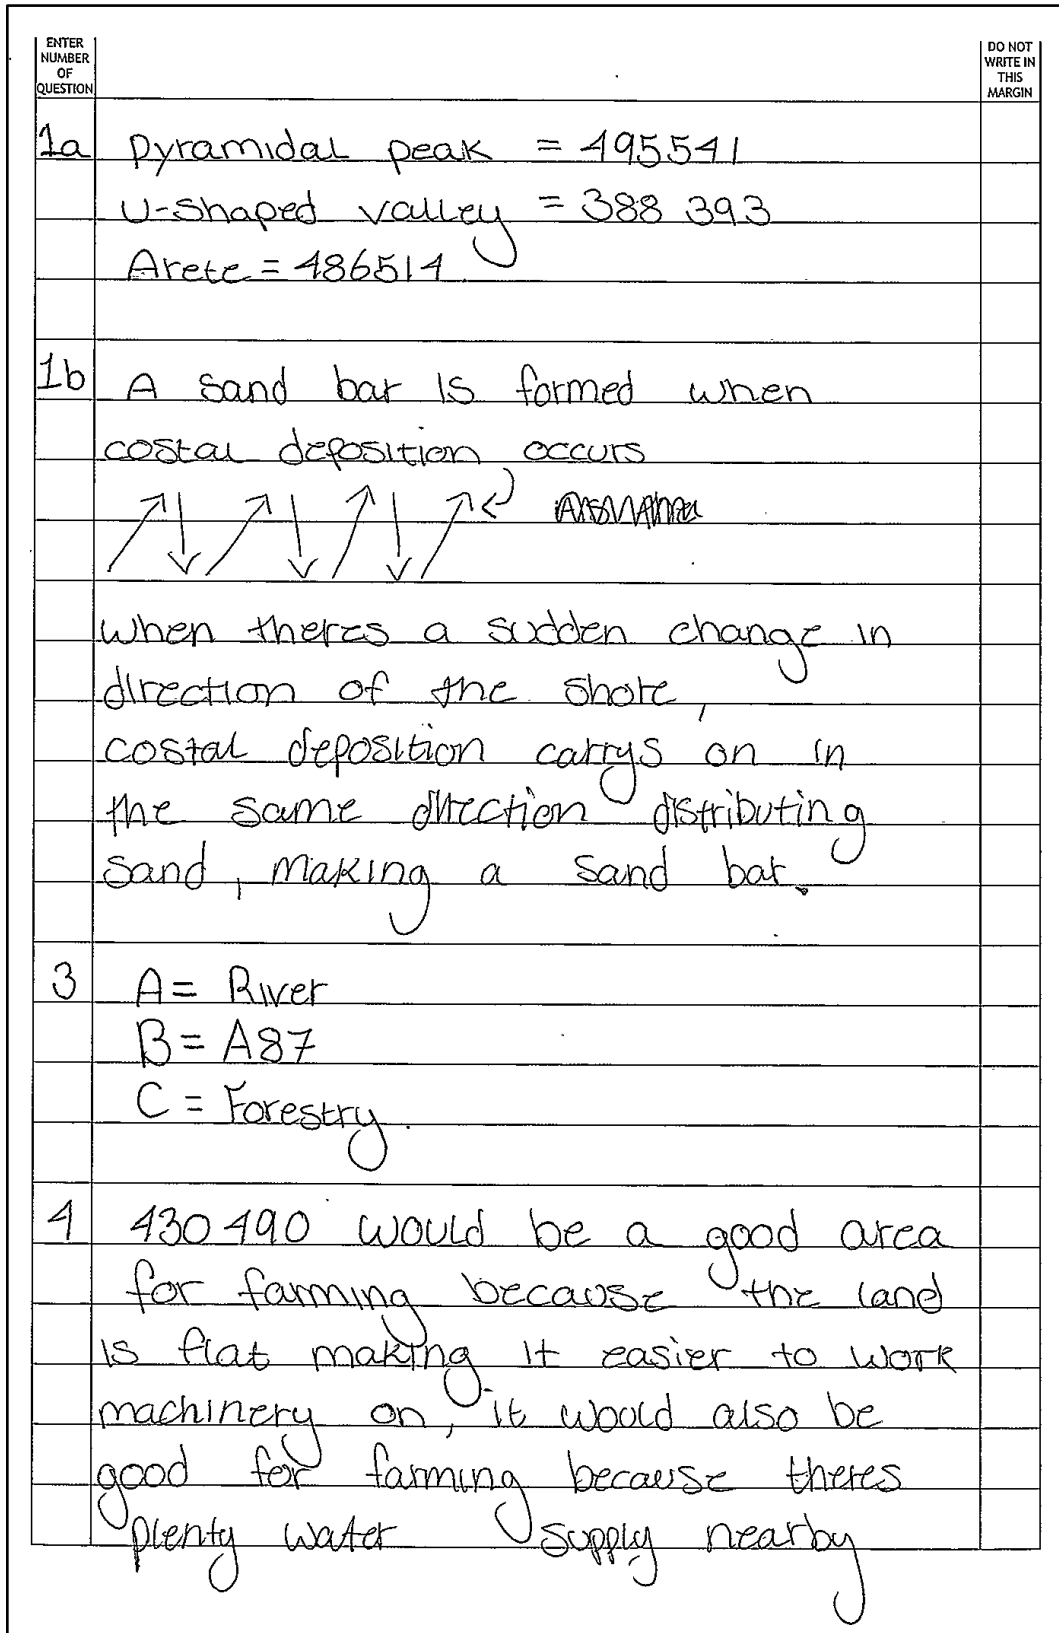 ENTER
NUMBER
OF
QUESTION
DO NOT
WRITE IN
THIS
MARGIN
1a pyramidal peak = 495541
U-shaped valley = 388 393
Arete = 486514
1b A sand bar is formed when
costal deposition occurs
when theres a sudden change in
direction of the shore,
costal deposition carrys on in
the same direction distributing
sand, making a sand bar.
3 A = River
B = A87
C = Forestry.
4 430 490 would be a good area
for farming because the land
is flat making it easier to work
machinery on, it would also be
good for farming because theres
plenty water supply nearby